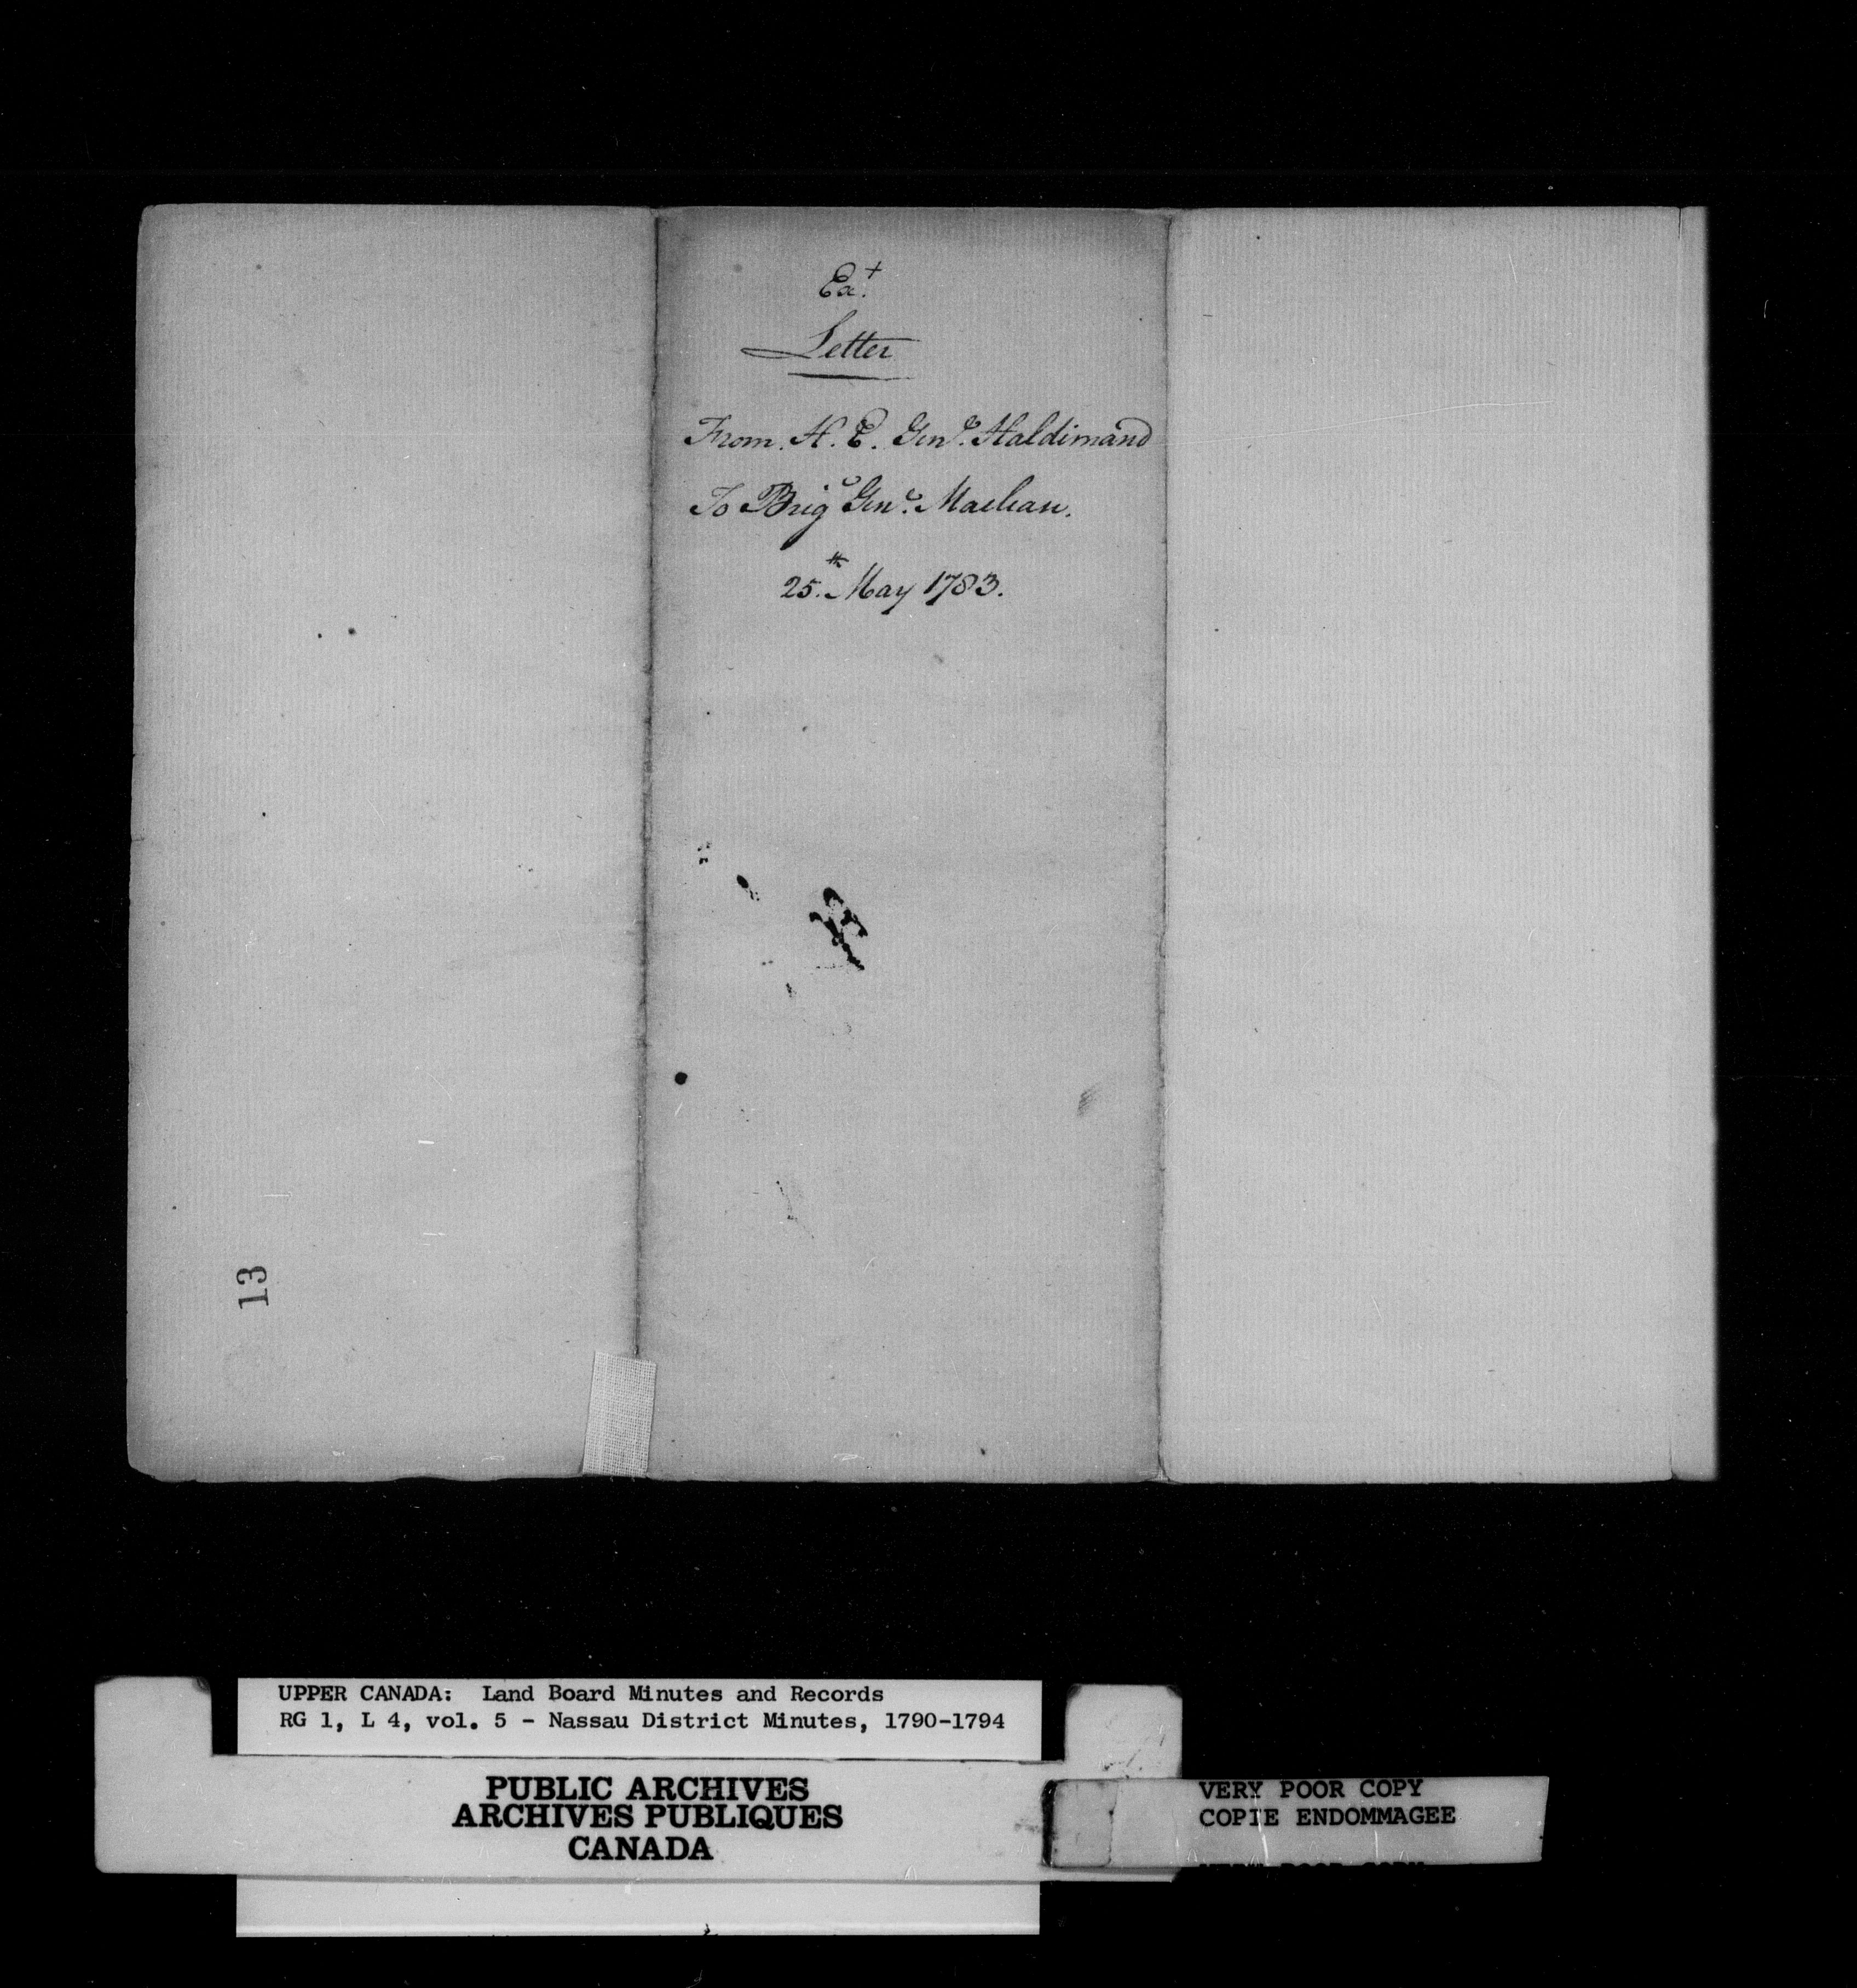 Ext.
Letter
From. H. E. Genl. Haldimand
To Brigr Genl. Maclean.
25.th May 1783.
13
UPPER CANADA: Land Board Minutes and Records
RG 1, L 4, vol. 5 - Nassau District Minutes, 1790-1794
PUBLIC ARCHIVES
ARCHIVES PUBLIQUES
CANADA
VERY POOR COPY
COPIE ENDOMMAGEE